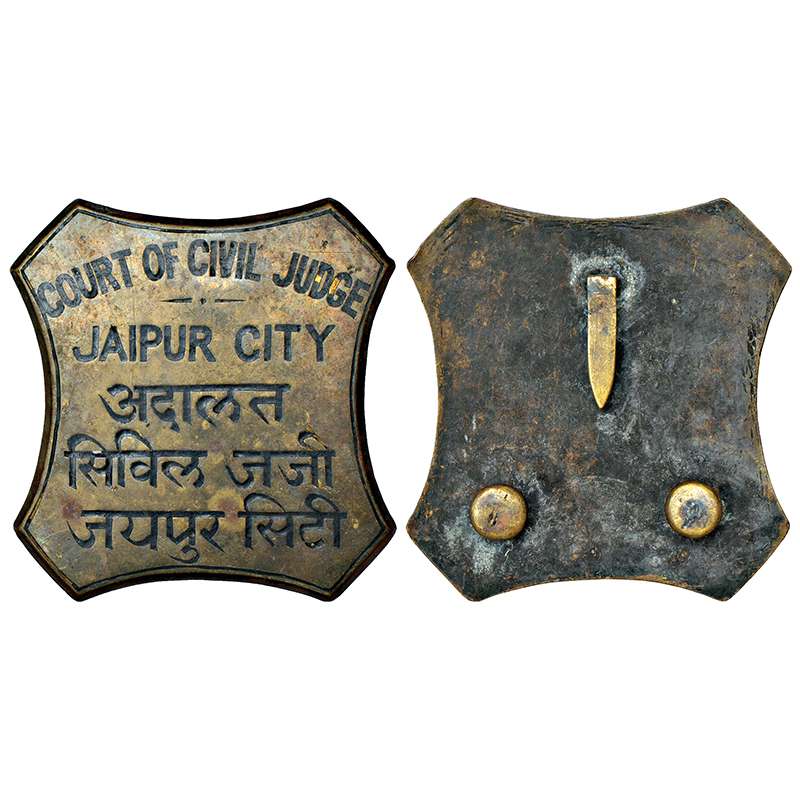 COURT OF CIVIL JUDGE
JAIPUR CITY
अदालत
सिविल जजी
जयपुर सिटी